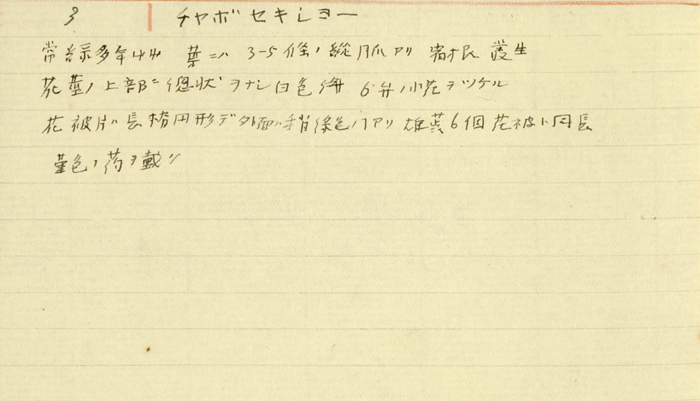 3 チヤボセキショー
常緑多年艸 葉ニハ 3-5條ノ縦脈アリ 岩根 叢生
花茎ノ上部ニ總状ヲナシ白色 6弁ノ小花ヲツケル
花被片ハ長楕円形デ外面ハ帯緑色 アリ 雄蕊6個 花被ト同長
菫色ノ葯ヲ戴ク